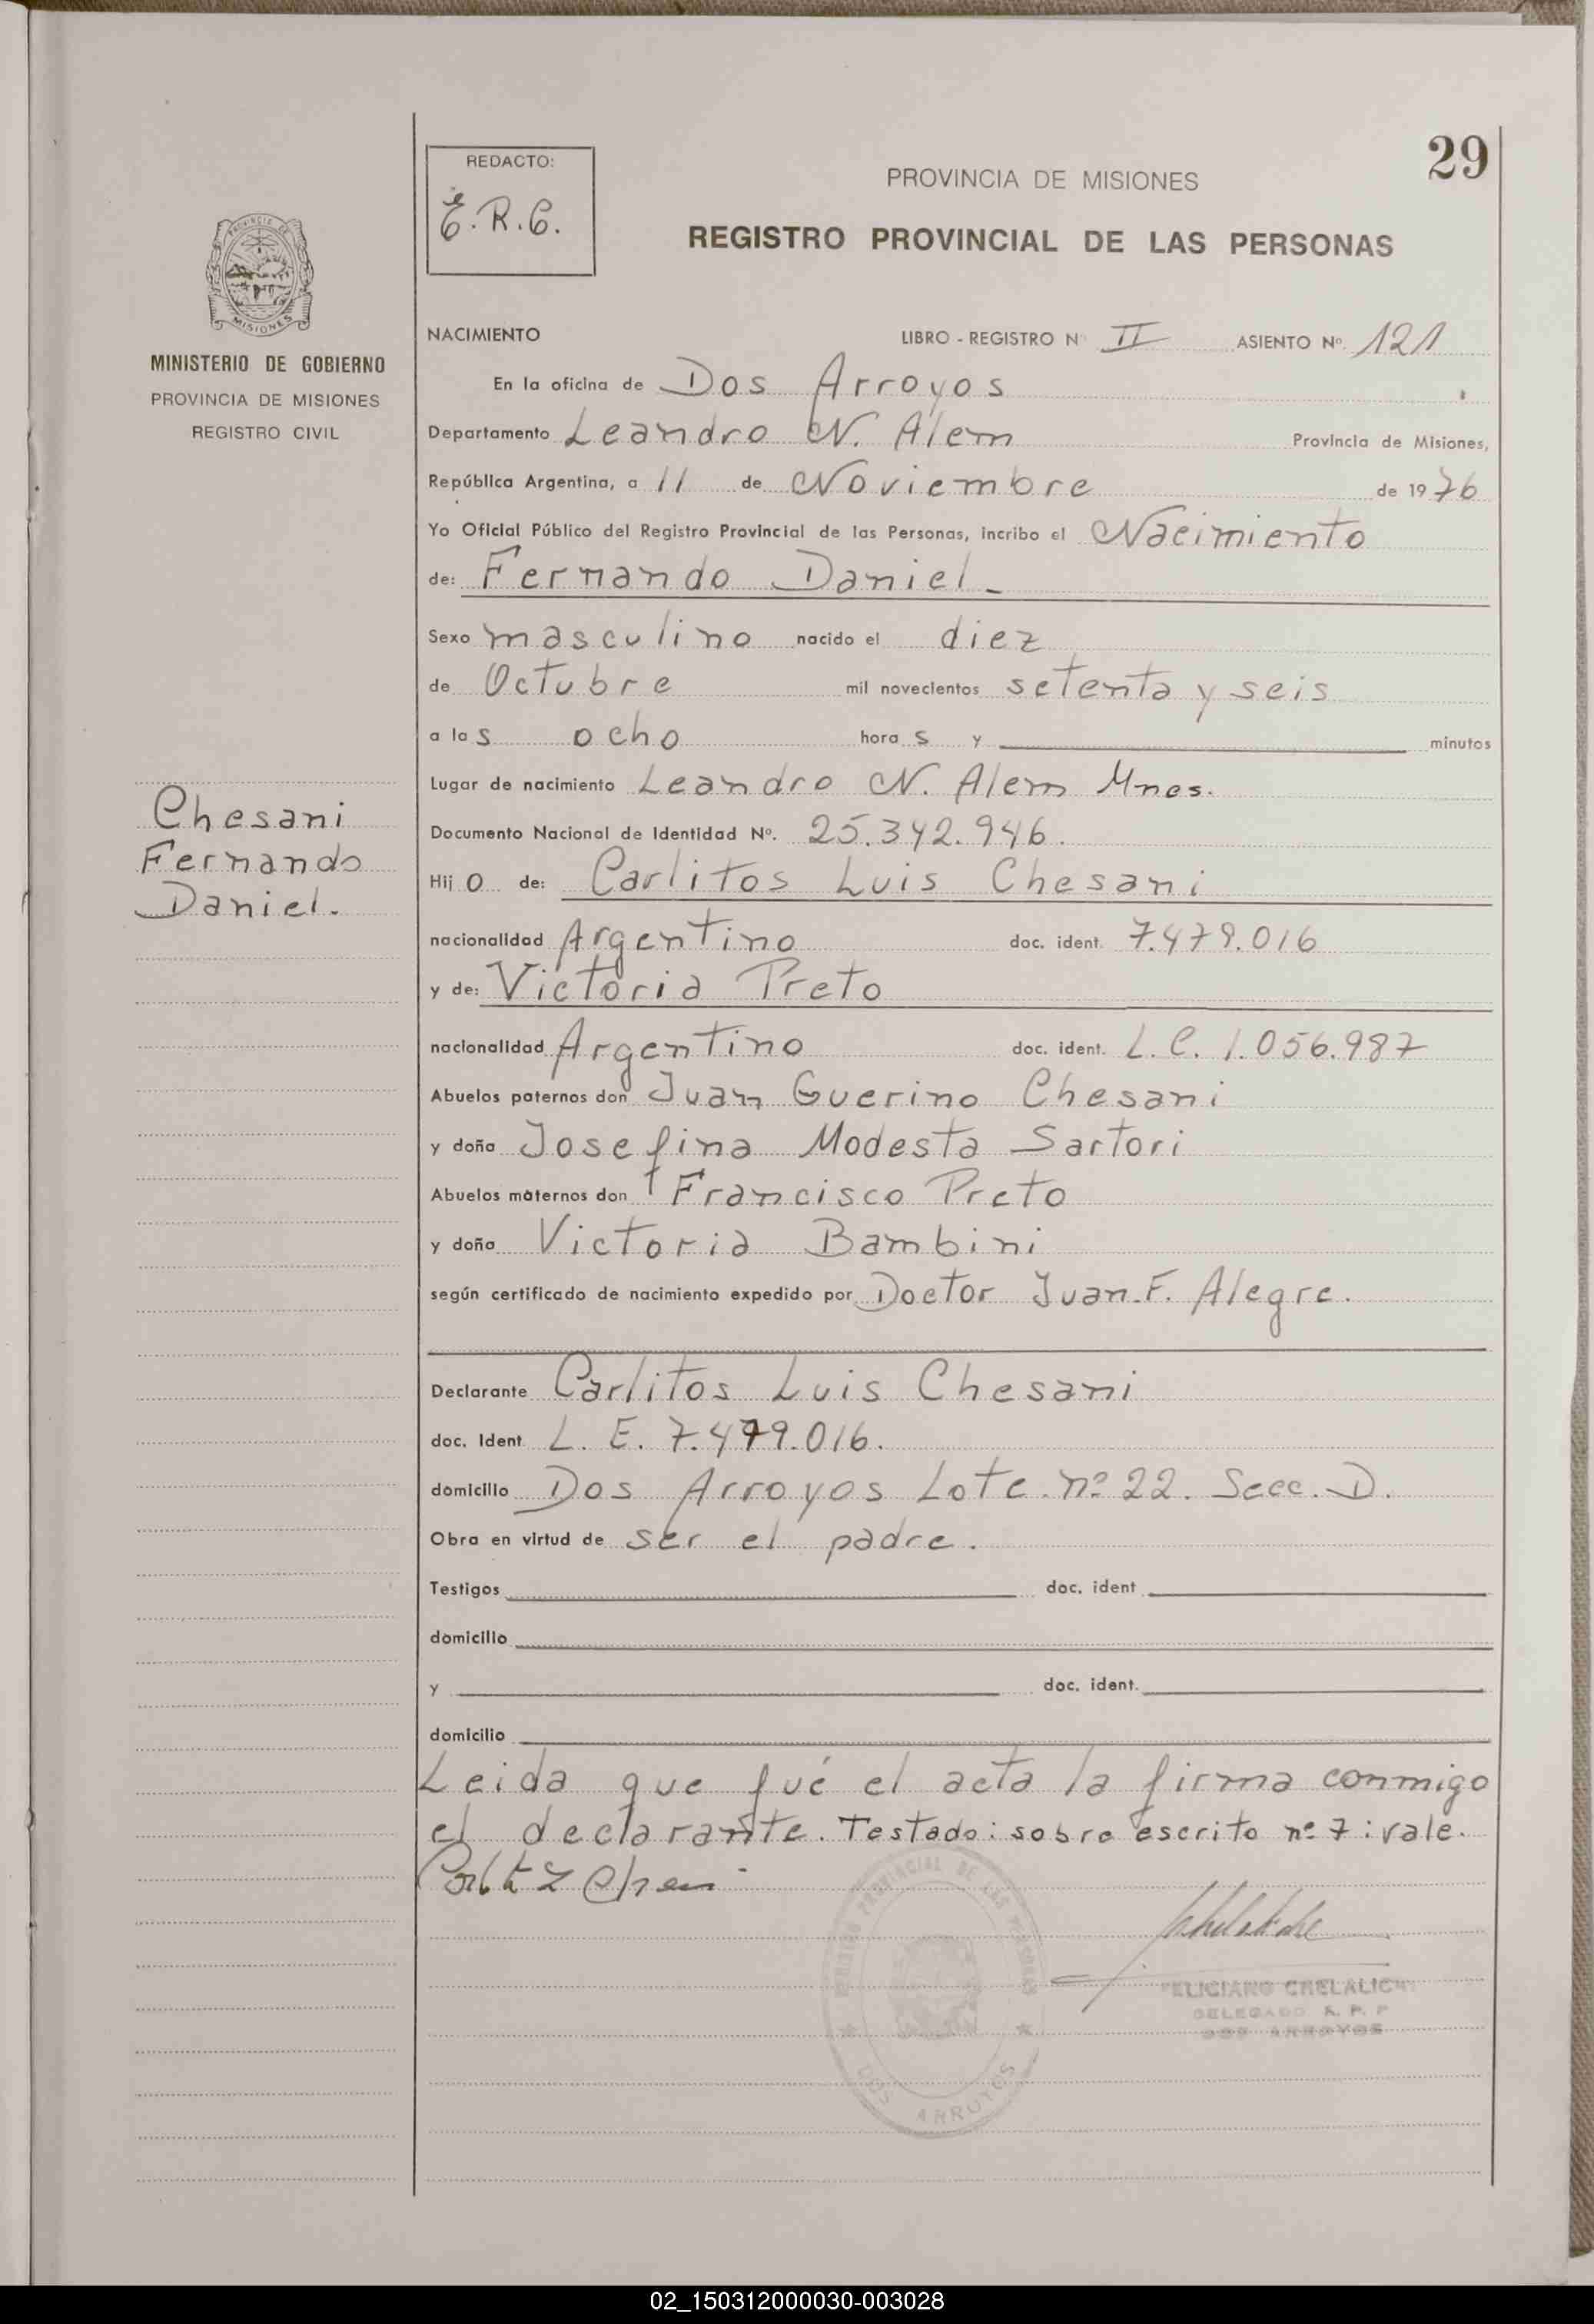 29
REDACTO:
E.R.C.
PROVINCIA DE MISIONES
REGISTRO PROVINCIAL DE LAS PERSONAS
PROVINCIA DE
MISIONES
MINISTERIO DE GOBIERNO
PROVINCIA DE MISIONES
REGISTRO CIVIL
NACIMIENTO LIBRO - REGISTRO Nº II ASIENTO Nº. 121
En la oficina de Dos Arroyos
Departamento Leandro N. Alem Provincia de Misiones,
República Argentina, a 11 de Noviembre de 1976
Yo Oficial Público del Registro Provincial de las Personas, incribo el Nacimiento
de: Fernando Daniel
Sexo masculino nacido el diez
de Octubre mil novecientos setenta y seis
a las ocho horas y minutos
Lugar de nacimiento Leandro N. Alem Mnes.
Documento Nacional de Identidad Nº. 25.342.946.
Chesani
Fernando
Daniel.
Hijo de: Carlitos Luis Chesani
nacionalidad Argentino doc. ident. 7.479.016
y de: Victoria Preto
nacionalidad Argentino doc. ident. L.C. 1.056.987
Abuelos paternos don Juan Guerino Chesani
y doña Josefina Modesta Sartori
Abuelos maternos don Francisco Preto
y doña Victoria Bambini
según certificado de nacimiento expedido por Doctor Juan F. Alegre.
Declarante Carlitos Luis Chesani
doc. Ident L. E. 7.479.016.
domicilio Dos Arroyos Lote nº 22. Secc. D.
Obra en virtud de ser el padre.
Testigos doc. ident
domicilio
y doc. ident.
domicilio
Leida que fué el acta la firma conmigo
el declarante. Testado: sobre escrito nº 7: vale.
PROVINCIAL DE LAS
DOS ARROYOS
FELICIANO CHELALICHE
DELEGADO R. P. P
DOS ARROYOS
02_150312000030-003028